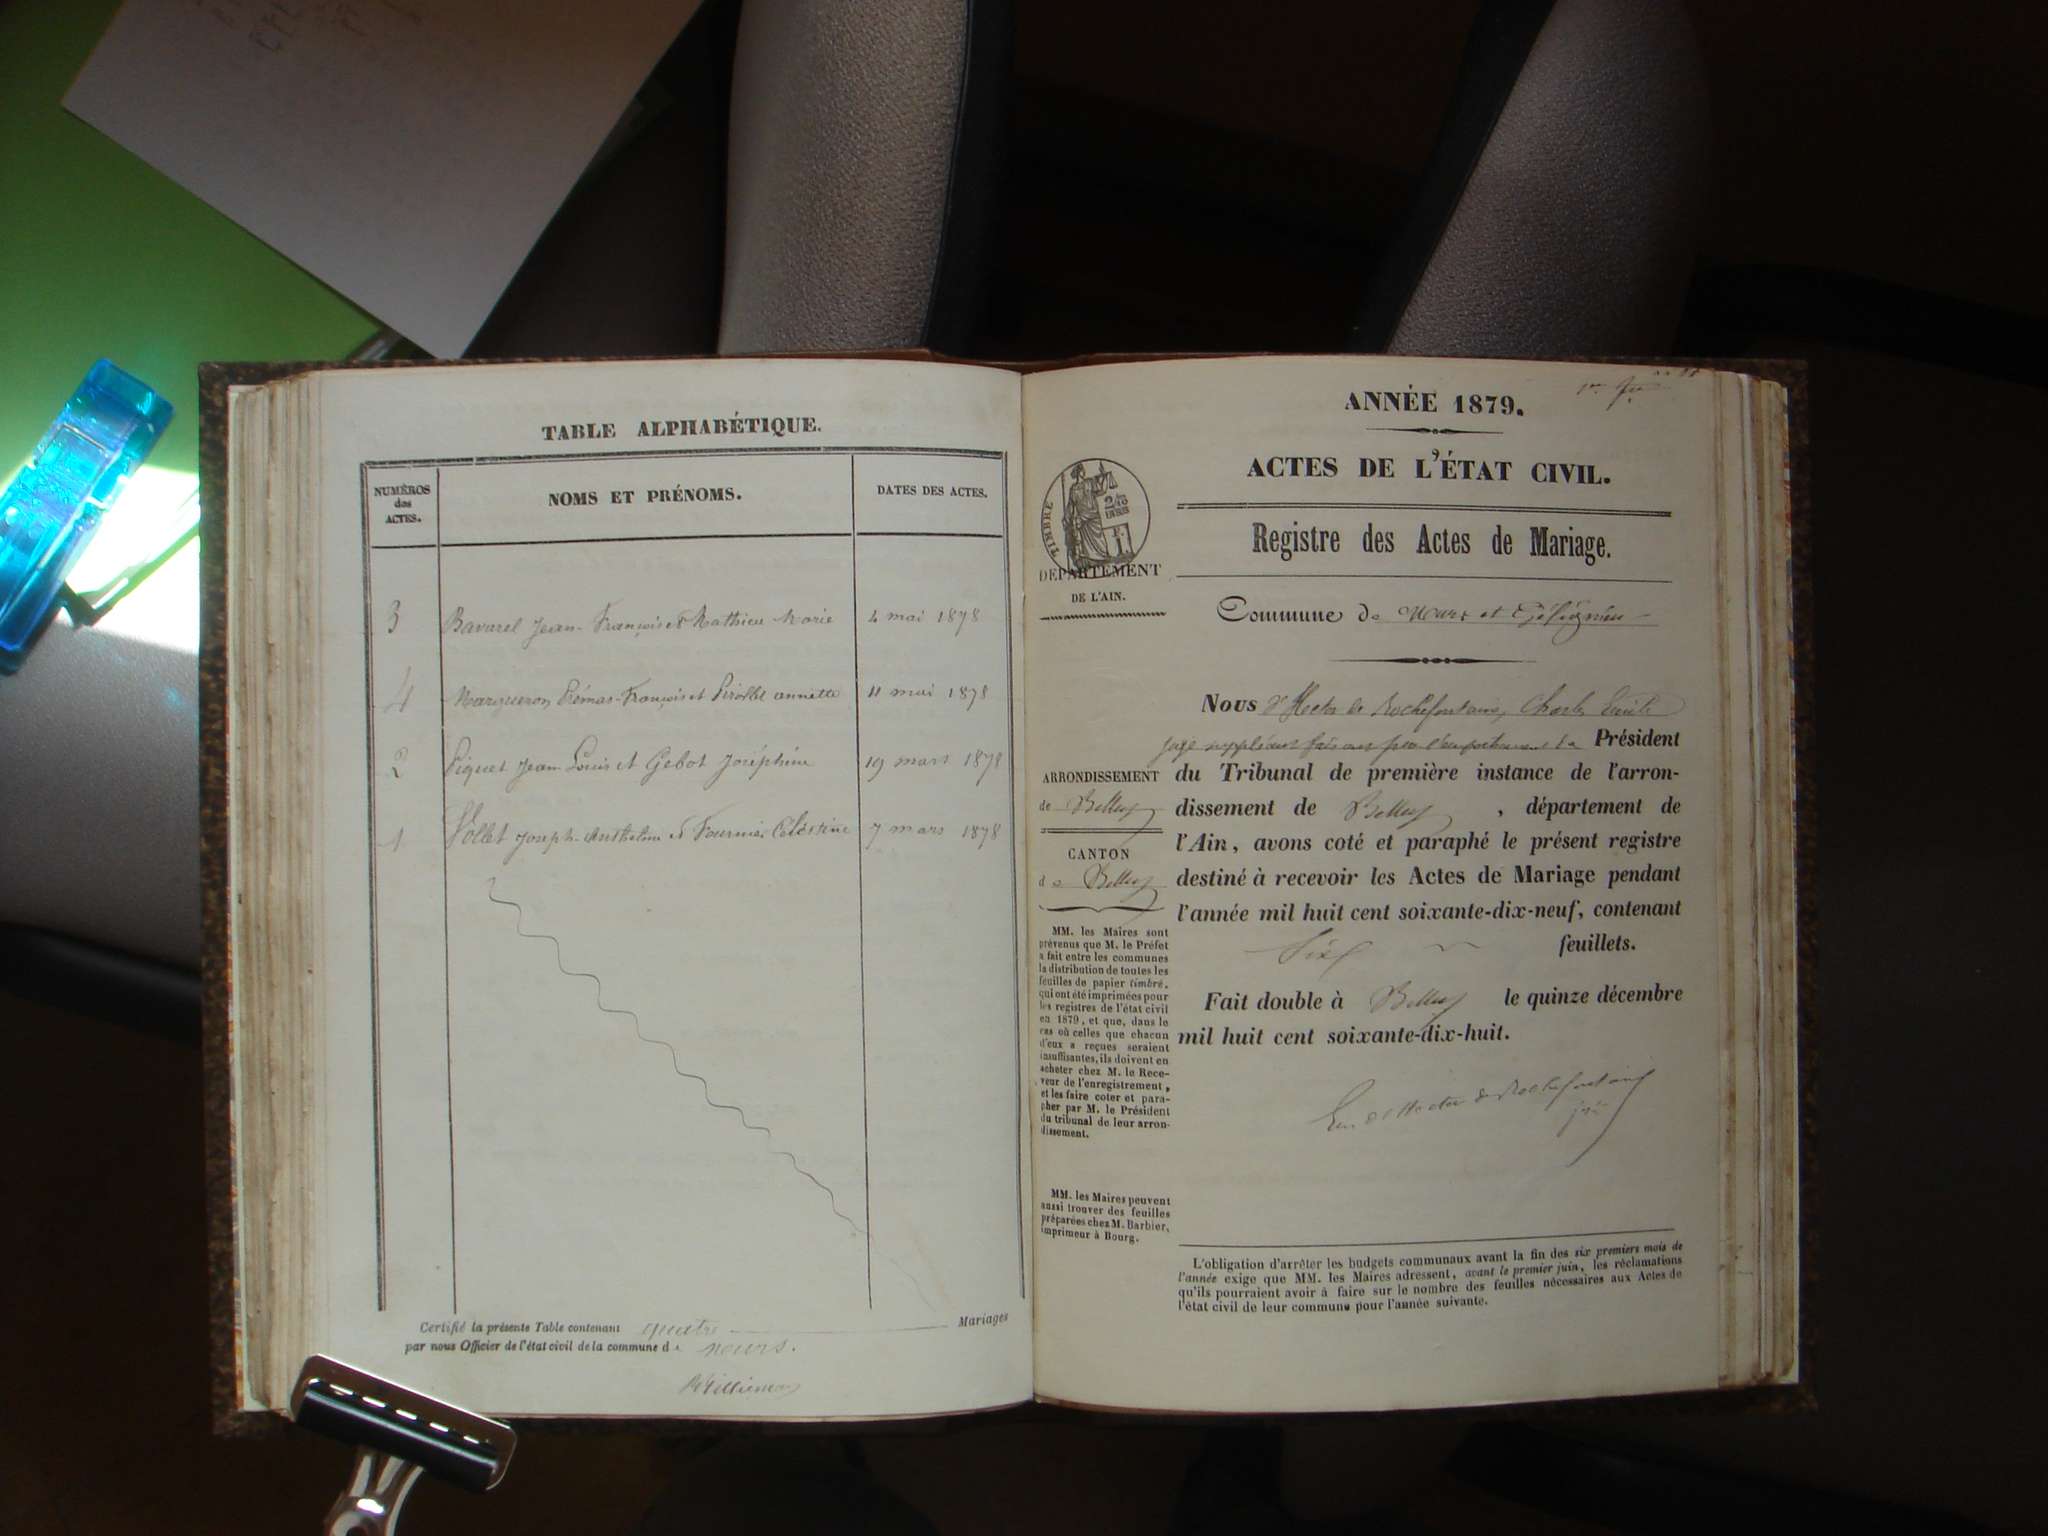 TABLE ALPHABÉTIQUE.
NUMÉROS
des
ACTES.
NOMS ET PRÉNOMS.
DATES DES ACTES.
3 Bavarel Jean-François et Mathieu Marie 4 mai 1878
4 Margueron François et annette 11 mai 1878
2 Piquet Jean Louis et Gebot Joséphine 19 mars 1878
1 Vollet Joseph-Anthelme et Fournier Célestine 7 mars 1878
Certifié la présente Table contenant quatre Mariages
par nous Officier de l'état civil de la commune de
ANNÉE 1879.
ACTES DE L'ÉTAT CIVIL.
TIMBRE
Registre des Actes de Mariage.
DÉPARTEMENT
DE L'AIN.
Commune de Murs et Gélignieu
Nous d'Hector de Rochefontaine, Charles Emile
juge suppléant Président
ARRONDISSEMENT
de Belley
CANTON
de Belley
du Tribunal de première instance de l'arron-
dissement de Belley, département de
l'Ain, avons coté et paraphé le présent registre
destiné à recevoir les Actes de Mariage pendant
l'année mil huit cent soixante-dix-neuf, contenant
Six feuillets.
Fait double à Belley le quinze décembre
mil huit cent soixante-dix-huit.
Em d'Hector de Rochefontaine
MM. les Maires sont
prévenus que M. le Préfet
a fait entre les communes
la distribution de toutes les
feuilles de papier timbré,
qui ont été imprimées pour
les registres de l'état civil
en 1879, et que, dans le
cas où celles que chacun
d'eux a reçues seraient
insuffisantes, ils doivent en
acheter chez M. le Rece-
veur de l'enregistrement,
et les faire coter et para-
pher par M. le Président
du tribunal de leur arron-
dissement.
MM. les Maires peuvent
aussi trouver des feuilles
préparées chez M. Barbier,
imprimeur à Bourg.
L'obligation d'arrêter les budgets communaux avant la fin des six premiers mois de
l'année exige que MM. les Maires adressent, avant le premier juin, les réclamations
qu'ils pourraient avoir à faire sur le nombre des feuilles nécessaires aux Actes de
l'état civil de leur commune pour l'année suivante.